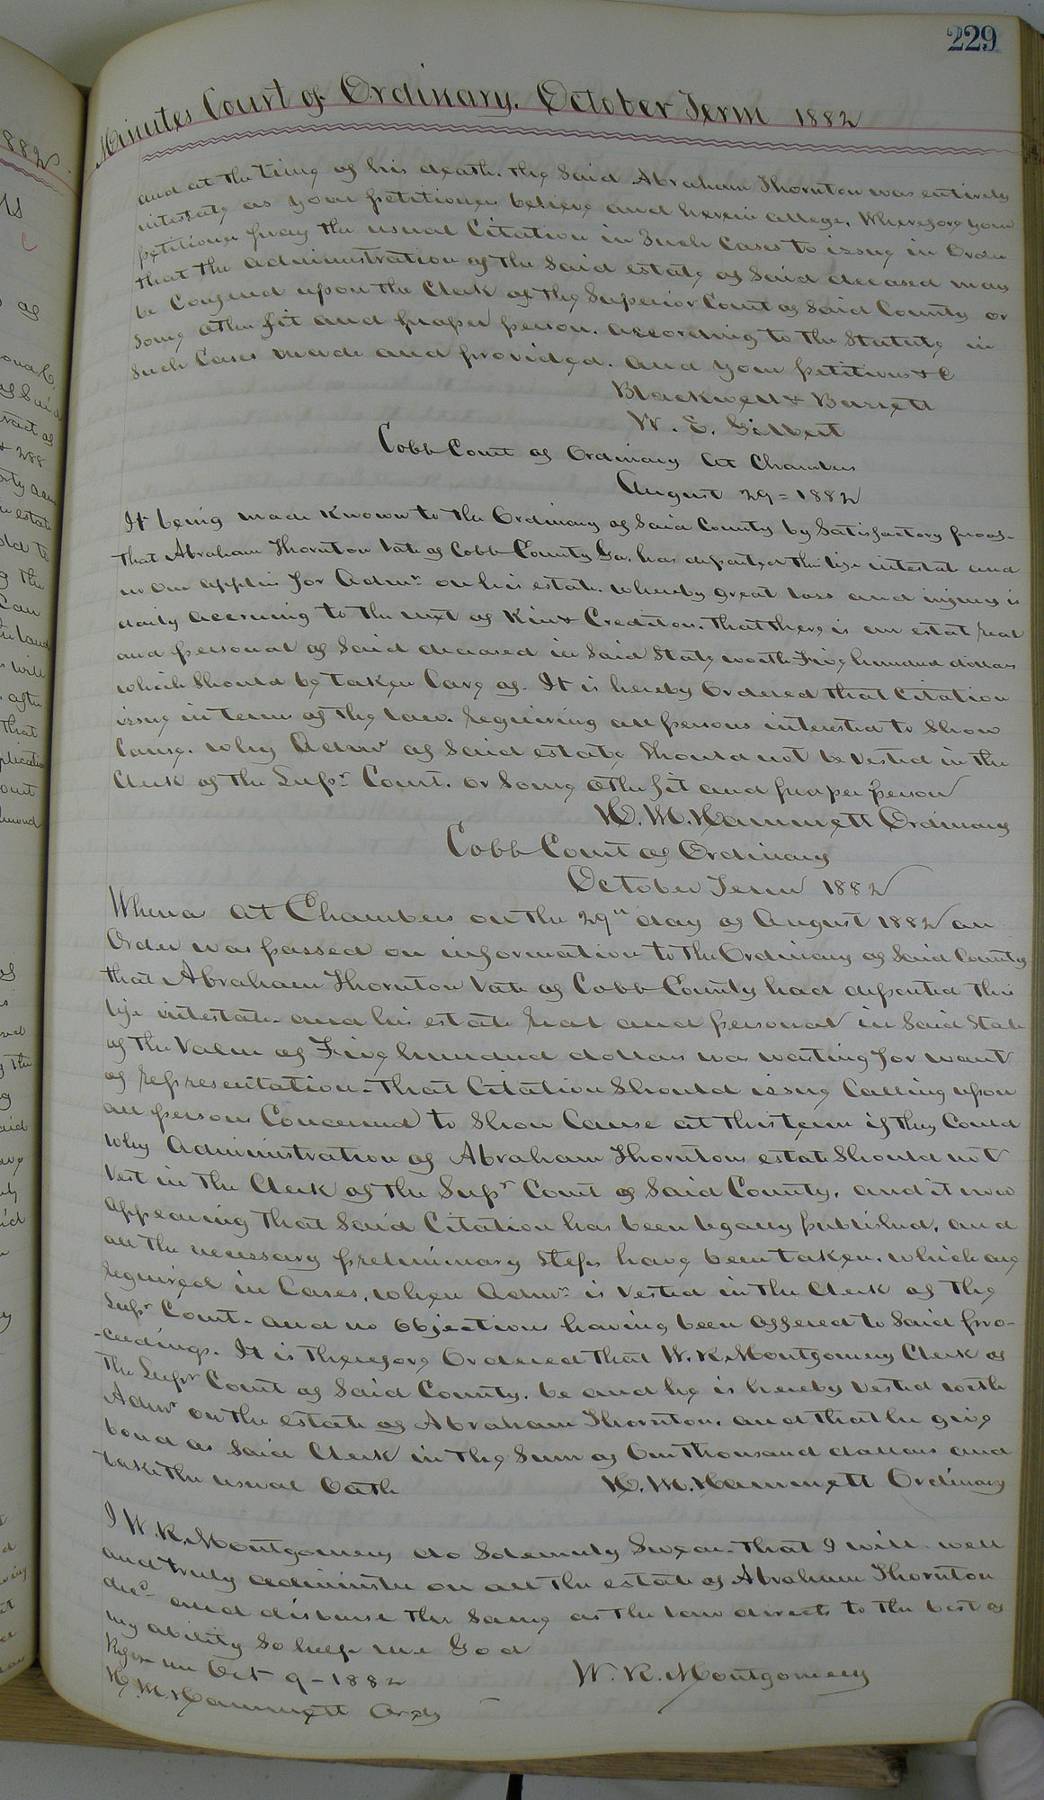 229
Minutes Court of Ordinary. October Term 1882
and at the time of his death. the said Abraham Thornton was entirely
intestate as your petitioners believe and herein allege. Wherefore your
petitioners pray the usual Citation in Such Cases to issue in Order
that the administration of the Said estate of Said deceased may
be Confered upon the Clerk of the Superior Court of Said County or
Some other fit and proper person. according to the Statute in
Such Cases made and provided. and your petitioners & C
Blackwell & Barrett
W. E. Gilbert
Cobb Court of Ordinary At Chambers
August 29 = 1882
It being made Known to the Ordinary of Said County by Satisfactory proof
that Abraham Thornton late of Cobb County Ga. has departed this life intestate and
no one applies for Admr on his estate. whereby great loss and injury is
daily accruing to the next of Kin & Creditors. That there is an estate real
and personal of Said deceased in Said State worth Five hundred dollars
which Should be taken Care of. It is hereby Ordered that Citation
issue in terms of the law. requiring all persons interested to Show
Cause. why Admr of Said estate Should not be vested in the
Clerk of the Supr Court. or Some other fit and proper person
H. M. Hammett Ordinary
Cobb Court of Ordinary
October Term 1882
Whereas At Chambers on the 29th day of August 1882 an
Order was passed on information to the Ordinary of Said County
that Abraham Thornton late of Cobb County had departed this
life intestate. and his estate real and personal in Said State
of the Value of Five hundred dollars was wasting for want
of representation = that Citation Should issue Calling upon
all persons Concerned to Show Cause at this term if they Could
Why Administration of Abraham Thorntons estate Should not
Vest in the Clerk of the Supr Court of Said County. and it now
appearing that Said Citation has been legally published. and
all the necessary preliminary Steps have been taken. which are
required in Cases. when Admr is Vested in the Clerk of the
Supr Court. and no Objections having been offered to Said pro-
-ceedings. It is therefore Ordered that W. R. Montgomery Clerk of
the Supr Court of Said County. be and he is hereby Vested with
Admr on the estate of Abraham Thornton. and that he give
bond as Said Clerk in the Sum of One thousand dollars and
take the usual Oath
H. M. Hammett Ordinary
I W. R. Montgomery do Solemnly Swear. that I will well
and truly administer on all the estate of Abraham Thornton
decd and disburse the Same as the law directs to the best of
my ability So help me God
before me Oct 9 - 1882
W. R. Montgomery
H. M. Hammett Ordy